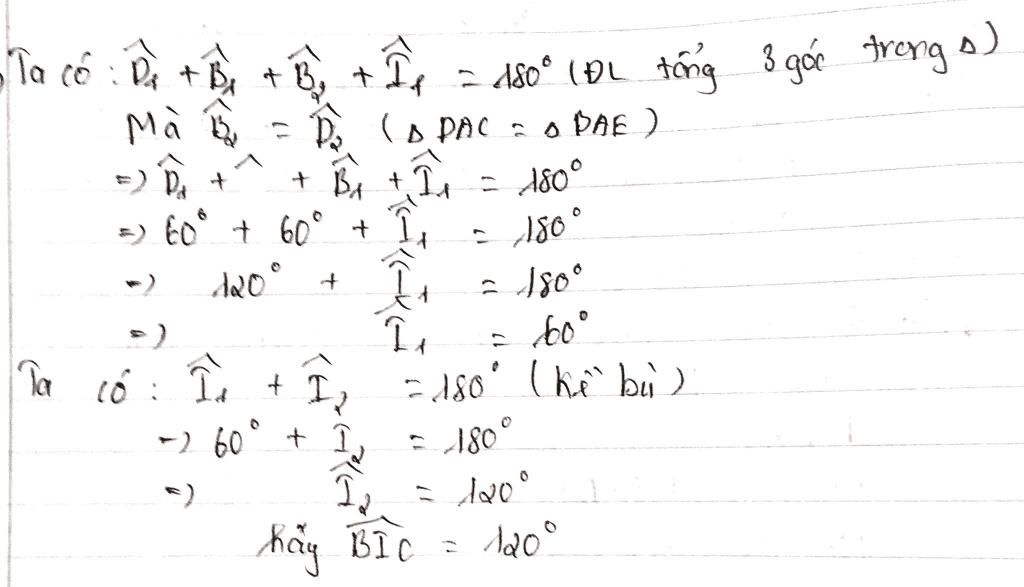 Ta có : D̂₁ + B̂₁ + B̂₂ + Î₁ = 180° (ĐL tổng 3 góc trong Δ)
Mà B̂₂ = D̂₂ (Δ DAC = Δ DAE)
=) D̂₁ + ^ + B̂₁ + Î₁ = 180°
=) 60° + 60° + Î₁ = 180°
=) 120° + Î₁ = 180°
=) Î₁ = 60°
Ta có : Î₁ + Î₂ = 180° (kề bù)
=) 60° + Î₂ = 180°
=) Î₂ = 120°
hãy BIC = 120°